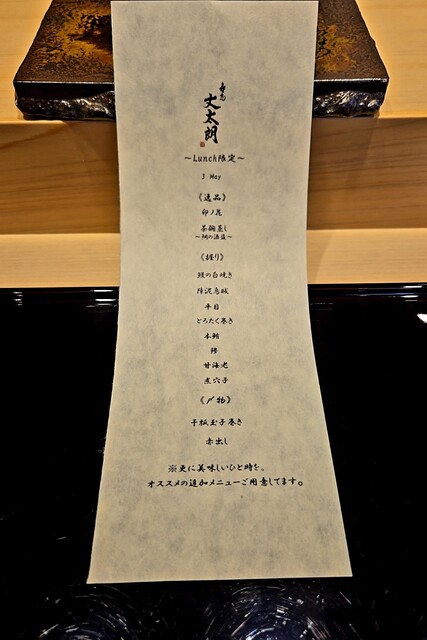 寿司
丈太朗
～Lunch限定～
3 May
《逸品》
卯ノ花
茶碗蒸し
～鯛の酒盗～
《握り》
鰻の白焼き
障泥烏賊
平目
とろたく巻き
本鮪
鯵
甘海老
煮穴子
《〆物》
干瓢玉子巻き
赤出し
※更に美味しいひと時を。
オススメの追加メニューご用意してます。